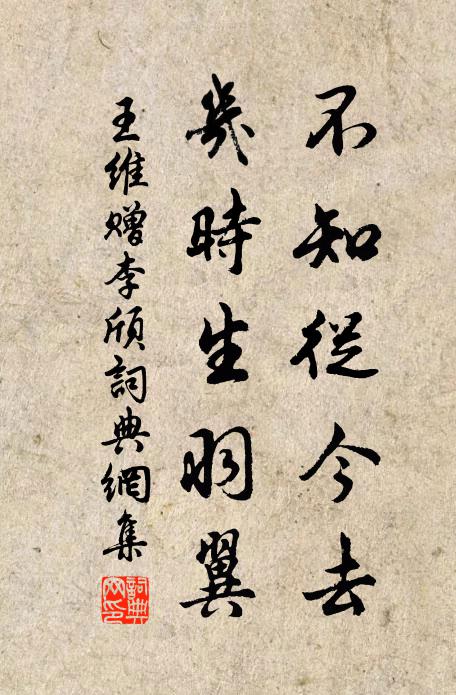 不知從今去
幾時生羽翼
王維贈李頎詞典網集
詞典網印